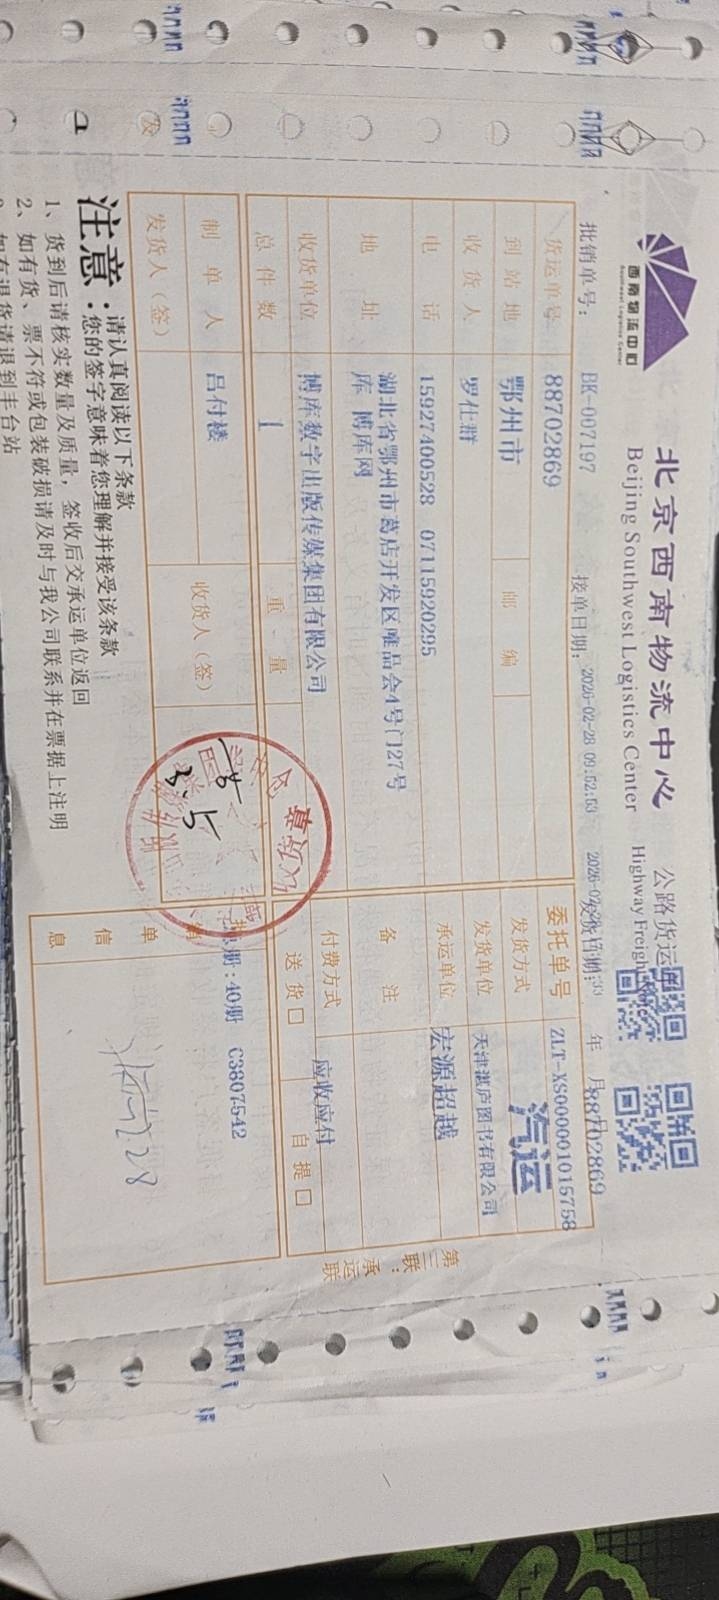 西南物流中心
Southwest Logistics Center
北京西南物流中心
Beijing Southwest Logistics Center
公路货运
Highway Freight
批销单号: BK-007197
接单日期: 2026-02-28 09:52:53
发货日期:
年 月
88702869
货运单号 88702869
委托单号 ZLT-XS000001015758
到站地 鄂州市 邮编
发货方式 汽运
收货人 罗仕群
发货单位 天津湛庐图书有限公司
电话 15927400528 07115920295
承运单位 宏源超越
地址 湖北省鄂州市葛店开发区唯品会4号门27号
库 博库网
备注
收货单位 博库数字出版传媒集团有限公司
付费方式 应收应付
总件数 1 重量
送货□ 自提□
制单人 吕付楼 收货人(签)
发货人(签)
3.5
单信息
册:40册 C3807542
第三联:承运联
注意:
请认真阅读以下条款
您的签字意味着您理解并接受该条款
1、货到后请核实数量及质量,签收后交承运单位返回
2、如有货、票不符或包装破损请及时与我公司联系并在票据上注明
如有退货请退到丰台站